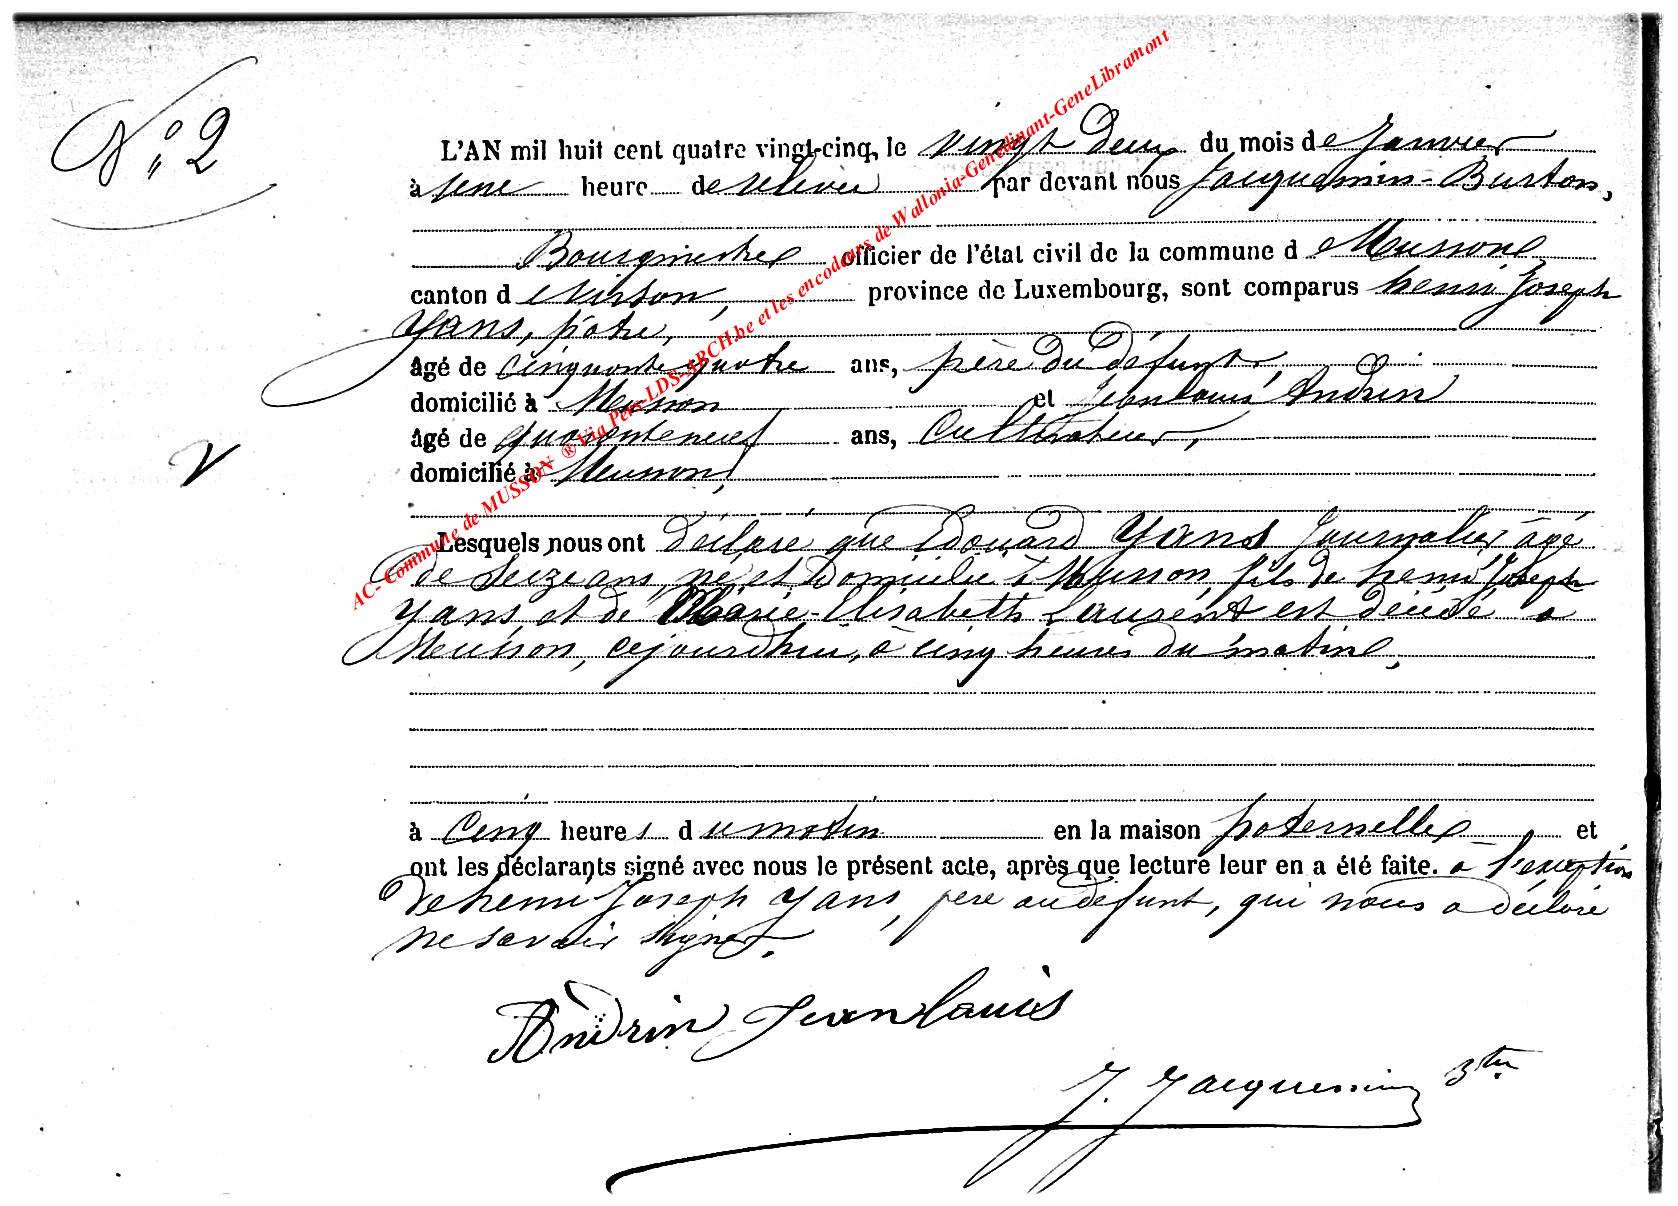 N° 2
L'AN mil huit cent quatre vingt-cinq, le vingt deux du mois de Janvier
à heure de relevée par devant nous Jacquemin-Burton,
Bourgmestre officier de l'état civil de la commune de Musson,
canton de Virton, province de Luxembourg, sont comparus henri Joseph
Yans, pâtre,
âgé de cinquante quatre ans, père du défunt,
domicilié à Musson et Jean Louis Andrin
âgé de quarante neuf ans, Cultivateur,
domicilié à Musson,
Lesquels nous ont déclaré que Edouard Yans Journalier âgé
de Seize ans, né et domicilié à Musson, fils de henri Joseph
Yans et de Marie-Elisabeth Laurent est décédé à
Musson, cejourdhui, à cinq heures du matin,
à Cinq heures du matin en la maison paternelle et
ont les déclarants signé avec nous le présent acte, après que lecture leur en a été faite. à l'exception
de henri Joseph Yans, père du défunt, qui nous a déclaré
ne savoir signer.
Andrin Jean louis
J. Jacquemin Btn
AC- Commune de MUSSON ® Via Pers-LDS-ARCH.be et les encodeurs de Wallonia-Genedinant-GeneLibramont